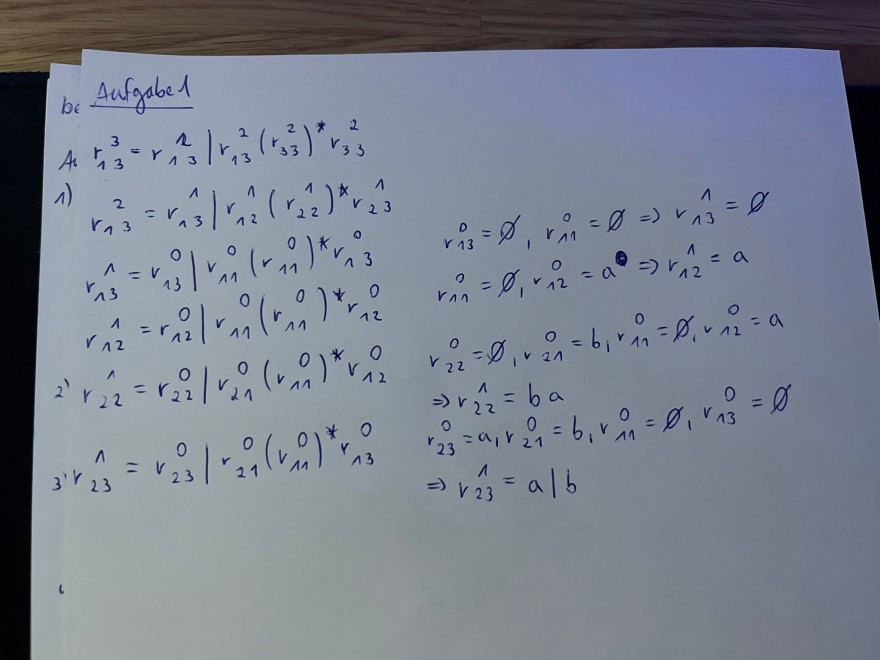 be Aufgabe 1
A. r_{13}^{3} = r_{13}^{2} | r_{13}^{2} (r_{33}^{2})^* r_{33}^{2}
1) r_{13}^{2} = r_{13}^{1} | r_{12}^{1} (r_{22}^{1})^* r_{23}^{1}
r_{13}^{1} = r_{13}^{0} | r_{11}^{0} (r_{11}^{0})^* r_{13}^{0} r_{13}^{0} = ∅, r_{11}^{0} = ∅ => r_{13}^{1} = ∅
r_{12}^{1} = r_{12}^{0} | r_{11}^{0} (r_{11}^{0})^* r_{12}^{0} r_{11}^{0} = ∅, r_{12}^{0} = a => r_{12}^{1} = a
2) r_{22}^{1} = r_{22}^{0} | r_{21}^{0} (r_{11}^{0})^* r_{12}^{0} r_{22}^{0} = ∅, r_{21}^{0} = b, r_{11}^{0} = ∅, r_{12}^{0} = a
=> r_{22}^{1} = ba
3) r_{23}^{1} = r_{23}^{0} | r_{21}^{0} (r_{11}^{0})^* r_{13}^{0} r_{23}^{0} = a, r_{21}^{0} = b, r_{11}^{0} = ∅, r_{13}^{0} = ∅
=> r_{23}^{1} = a | b